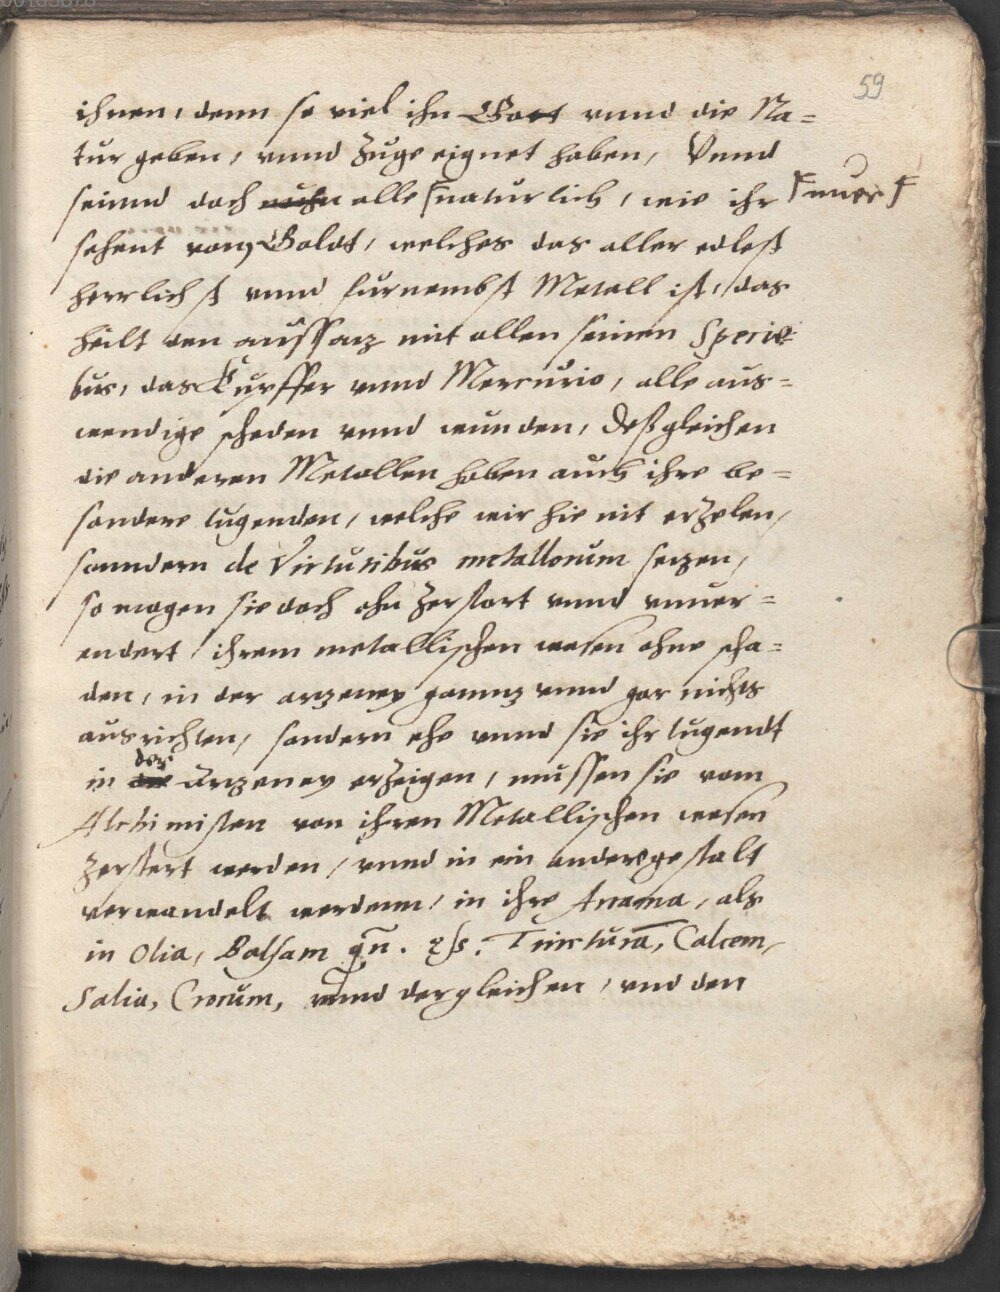 59
ihnen, denn so viel ihn Gott vnnd die Na=
tur geben, vnnd zuge eignet haben, Vnnd
seinnd doch alle natürlich, wie ihr
sehent vom Goldt, welches das aller edlest
herrlichst vnnd fürnembst Metall ist, das
heilt den aussatz mit allen seinen Specie
bus, das Kupffer vnnd Mercurio, alle aus=
wendige scheden vnnd wunden, deßgleichen
die anderen Metallen haben auch ihre be=
sondere tugenden, welche wir hie nit erzelen,
sonndern de Virtutibus metallorum setzen,
so mogen sie doch ohn zerstort vnnd vnuer=
endert ihrem metallischen wesen ohne scha=
den, in der artzeney ganntz vnnd gar nichts
ausrichten, sondern ehe vnnd sie ihr tugendt
in der Artzeney erzeigen, mussen sie vom
Alchimisten von ihren Metallischen wesen
zerstert werden, vnnd in ein andere gestalt
verwandelt werdenn, in ihre Arcana, als
in Olia, Balsam Tincturā, Calcem,
Salia, Crocum, vnnd dergleichen, vnd den